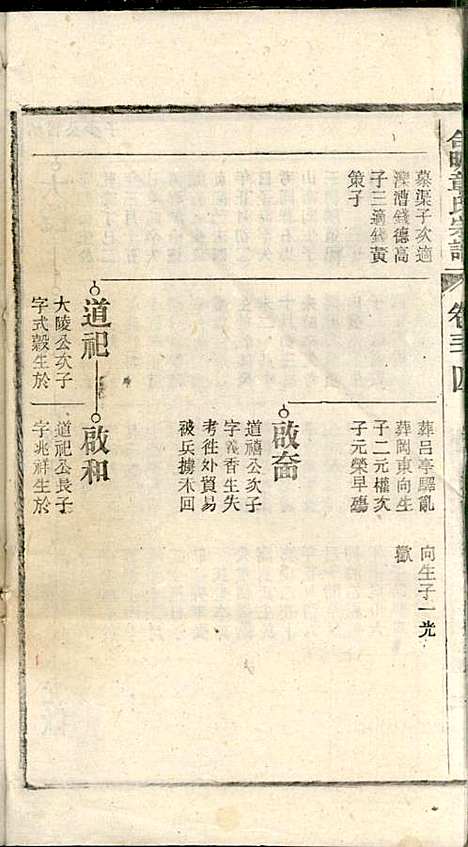 章氏宗譜
卷三四
慕渠子次適
溁漕錢德高
子三適錢黃
策子
道祀
大陵公次子
字式穀生於
葬呂亭驛亂
葬岡東向生
子二元權次
子元榮早殤
啟裔
道禧公次子
字義香生失
考徃外貿易
被兵擄未回
啟和
道祀公長子
字兆祥生於
向生子一光
歡